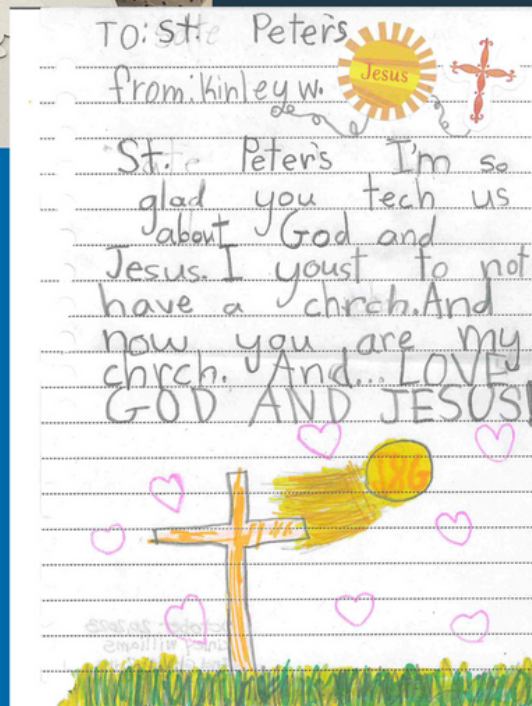 TO: St. Peter's
from: Kinley W.
Jesus
St. Peter's I'm so
glad you tech us
about God and
Jesus. I youst to not
have a chrch. And
now you are my
chrch. And... LOVE
GOD AND JESUS!
J&G